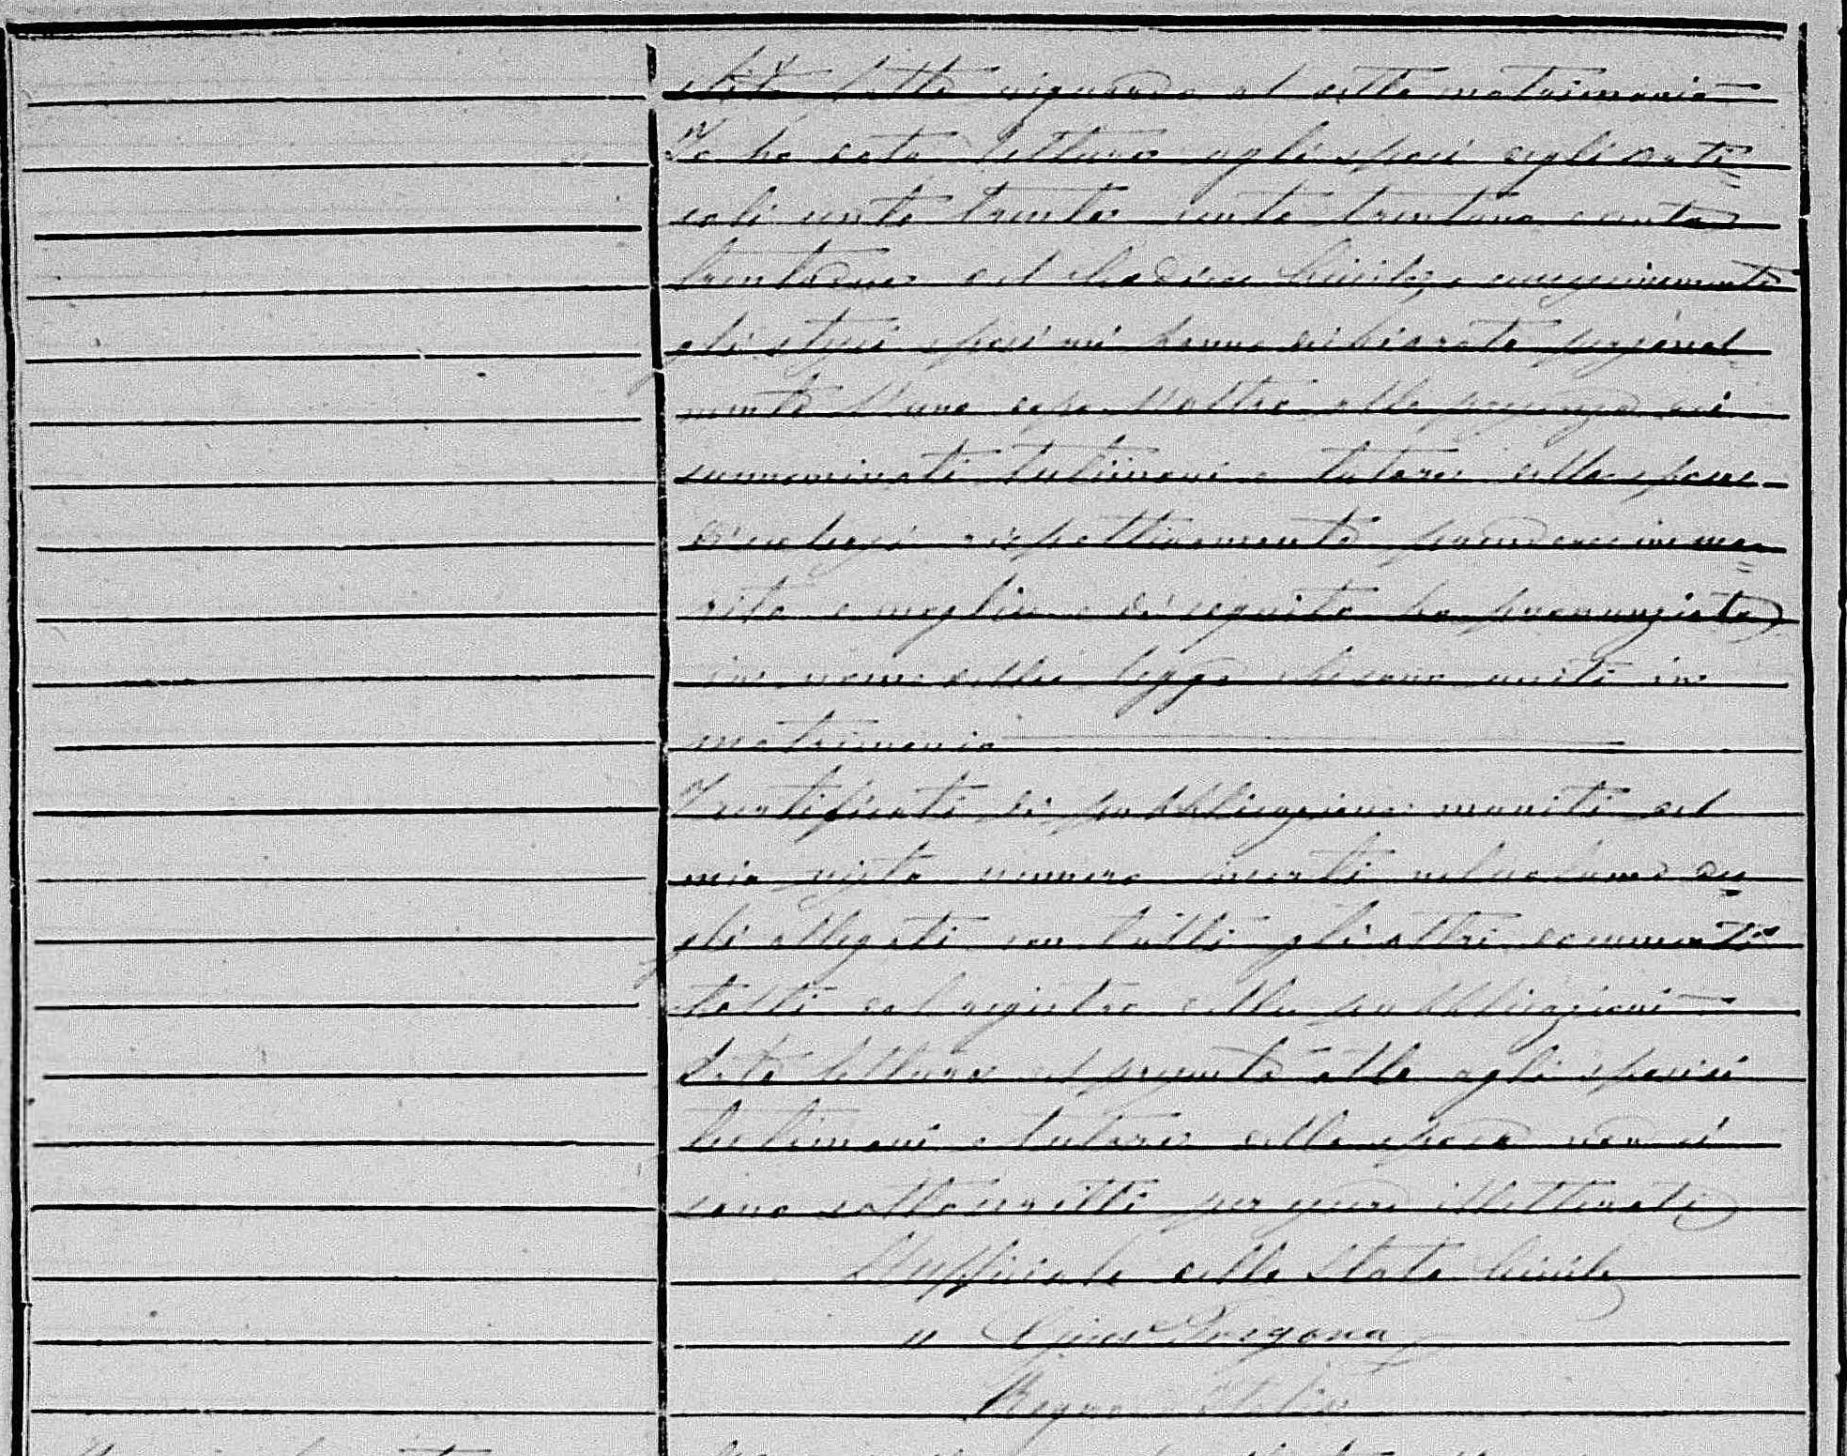 stata fatta riguardo al detto matrimonio
Io ho data lettura agli sposi degli arti=
coli cento trenta cento trentuno e cento
trentadue del Codice Civile, e conseguentemente
gli stessi sposi mi hanno dichiarato personal=
mente l'uno dopo l'altro alla presenza dei
sunnominati testimoni e tutore della sposa
di volersi rispettivamente prendere in ma=
rito e moglie e di seguito ho pronunziato
in nome della legge che sono uniti in
matrimonio
I certificati di pubblicazione muniti del
mio visto vennero inserti nel volume de=
gli allegati con tutti gli altri documenti
tolti dal registro delle pubblicazioni
Data lettura del presente atto agli sposi ai
testimoni e tutore della sposa non si
sono sottoscritti per essere illetterati
L'uffiziale dello Stato Civile
" Tregona
Regno d'Italia